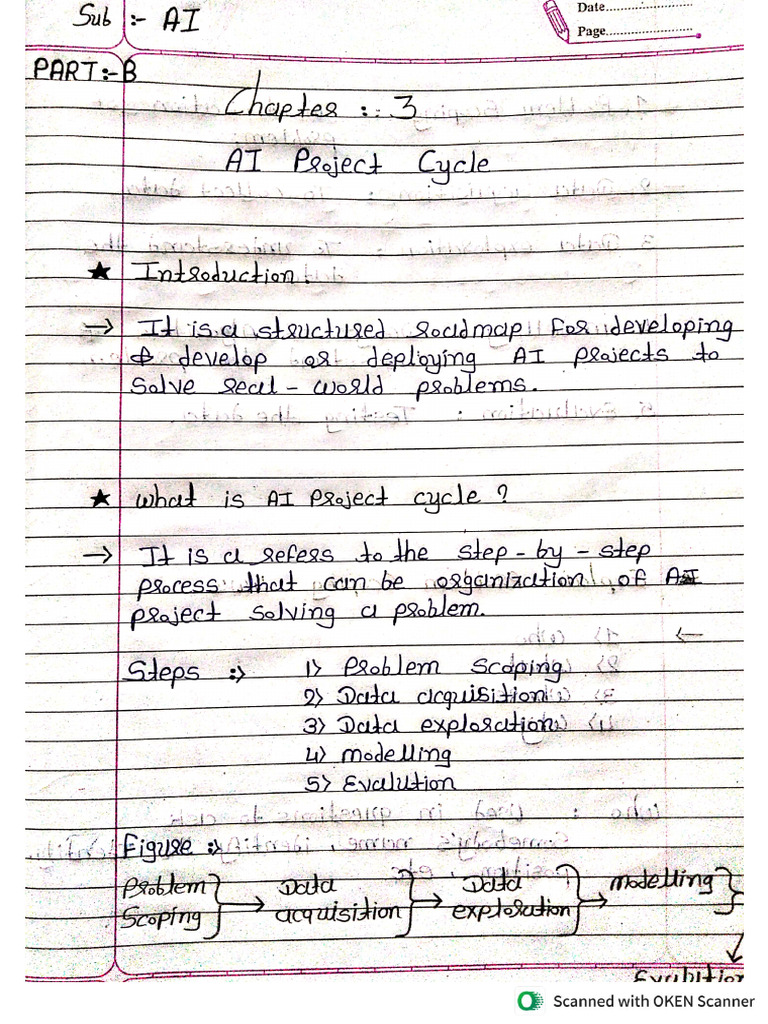 Sub :- AI
Date
Page
PART:-B
Chapter :- 3
AI Project Cycle
★ Introduction :
→ It is a structured roadmap for developing
& develop or deploying AI projects to
solve real-world problems.
★ What is AI project cycle ?
→ It is a refers to the step-by-step
process that can be organization of AI
project solving a problem.
Steps :→ 1> Problem scoping
2> Data acquisition
3> Data exploration
4> modelling
5> Evalution
Figure :→
Problem Scoping } → Data acquisition } → Data exploration } → modelling }
↓
Evalution
Scanned with OKEN Scanner